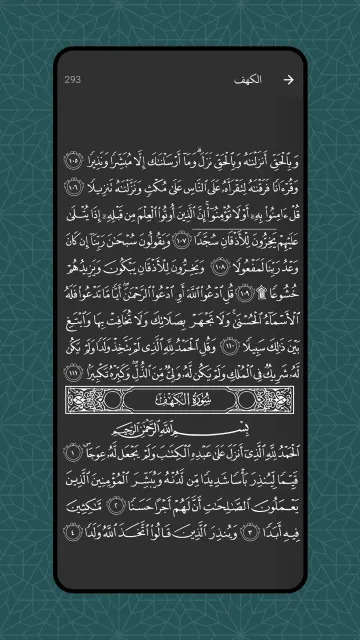 293
الكهف
وَبِٱلْحَقِّ أَنزَلْنَٰهُ وَبِٱلْحَقِّ نَزَلَ ۗ وَمَآ أَرْسَلْنَٰكَ إِلَّا مُبَشِّرًا وَنَذِيرًا ١٠٥
وَقُرْءَانًا فَرَقْنَٰهُ لِتَقْرَأَهُۥ عَلَى ٱلنَّاسِ عَلَىٰ مُكْثٍ وَنَزَّلْنَٰهُ تَنزِيلًا ١٠٦
قُلْ ءَامِنُوا۟ بِهِۦٓ أَوْ لَا تُؤْمِنُوٓا۟ ۚ إِنَّ ٱلَّذِينَ أُوتُوا۟ ٱلْعِلْمَ مِن قَبْلِهِۦٓ إِذَا يُتْلَىٰ
عَلَيْهِمْ يَخِرُّونَ لِلْأَذْقَانِ سُجَّدًا ١٠٧ وَيَقُولُونَ سُبْحَٰنَ رَبِّنَآ إِن كَانَ
وَعْدُ رَبِّنَا لَمَفْعُولًا ١٠٨ وَيَخِرُّونَ لِلْأَذْقَانِ يَبْكُونَ وَيَزِيدُهُمْ
خُشُوعًا ۩ ١٠٩ قُلِ ٱدْعُوا۟ ٱللَّهَ أَوِ ٱدْعُوا۟ ٱلرَّحْمَٰنَ ۖ أَيًّا مَّا تَدْعُوا۟ فَلَهُ
ٱلْأَسْمَآءُ ٱلْحُسْنَىٰ ۚ وَلَا تَجْهَرْ بِصَلَاتِكَ وَلَا تُخَافِتْ بِهَا وَٱبْتَغِ
بَيْنَ ذَٰلِكَ سَبِيلًا ١١٠ وَقُلِ ٱلْحَمْدُ لِلَّهِ ٱلَّذِى لَمْ يَتَّخِذْ وَلَدًا وَلَمْ يَكُن
لَّهُۥ شَرِيكٌ فِى ٱلْمُلْكِ وَلَمْ يَكُن لَّهُۥ وَلِىٌّ مِّنَ ٱلذُّلِّ ۖ وَكَبِّرْهُ تَكْبِيرًۢا ١١١
سُورَةُ الكَهْفِ
بِسْمِ ٱللَّهِ ٱلرَّحْمَٰنِ ٱلرَّحِيمِ
ٱلْحَمْدُ لِلَّهِ ٱلَّذِىٓ أَنزَلَ عَلَىٰ عَبْدِهِ ٱلْكِتَٰبَ وَلَمْ يَجْعَل لَّهُۥ عِوَجَا ۜ ١
قَيِّمًا لِّيُنذِرَ بَأْسًا شَدِيدًا مِّن لَّدُنْهُ وَيُبَشِّرَ ٱلْمُؤْمِنِينَ ٱلَّذِينَ
يَعْمَلُونَ ٱلصَّٰلِحَٰتِ أَنَّ لَهُمْ أَجْرًا حَسَنًا ٢ مَّٰكِثِينَ
فِيهِ أَبَدًا ٣ وَيُنذِرَ ٱلَّذِينَ قَالُوا۟ ٱتَّخَذَ ٱللَّهُ وَلَدًا ٤